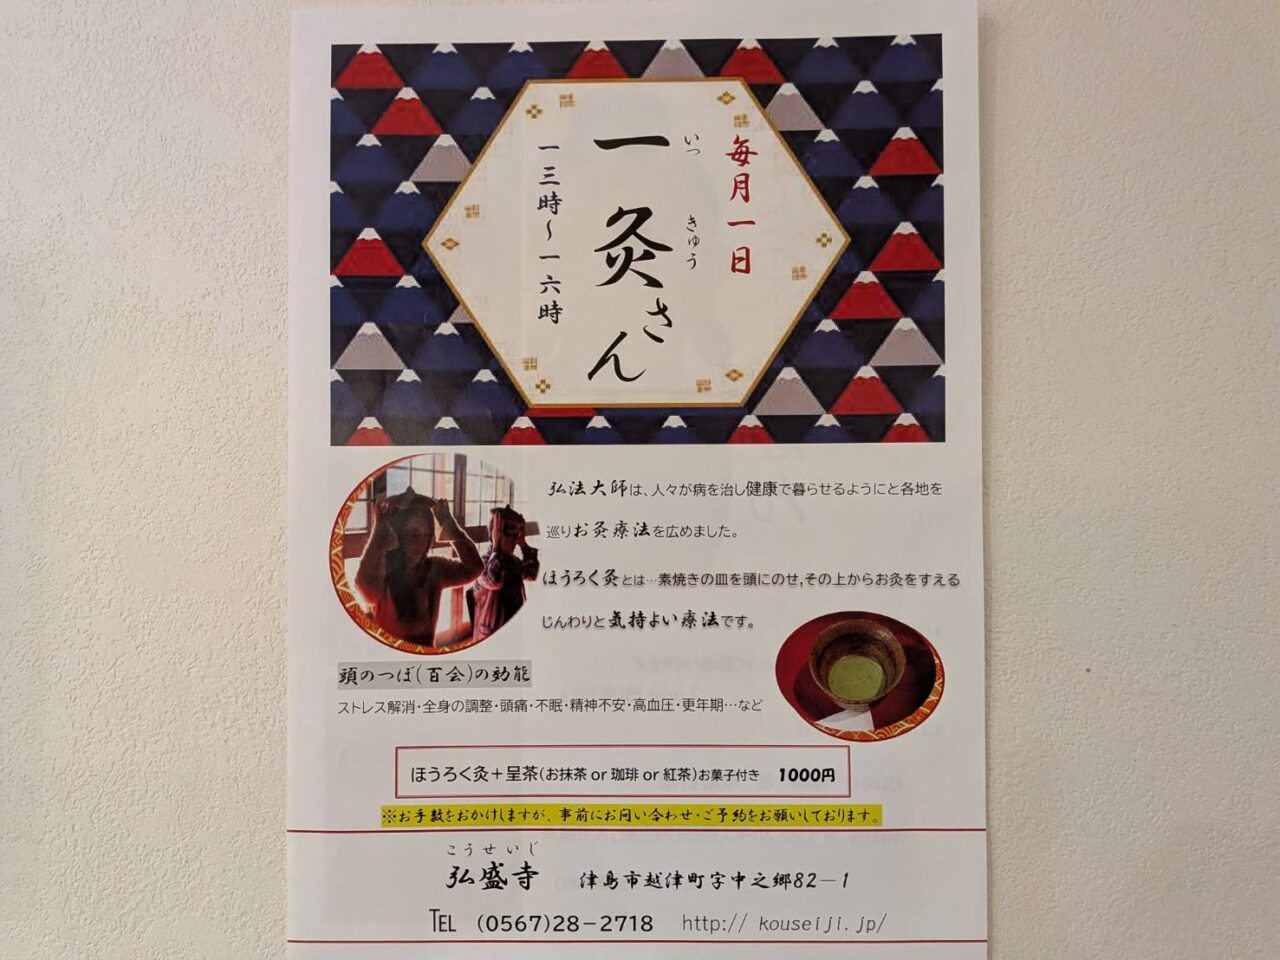 毎月一日
いっ きゅう
一灸さん
一三時～一六時
弘法大師は、人々が病を治し健康で暮らせるようにと各地を
巡りお灸療法を広めました。
ほうろく灸とは…素焼きの皿を頭にのせ,その上からお灸をすえる
じんわりと気持よい療法です。
頭のつぼ(百会)の効能
ストレス解消・全身の調整・頭痛・不眠・精神不安・高血圧・更年期…など
ほうろく灸＋呈茶(お抹茶 or 珈琲 or 紅茶)お菓子付き 1000円
※お手数をおかけしますが、事前にお問い合わせ・ご予約をお願いしております。
こうせいじ
弘盛寺 津島市越津町字中之郷82－1
TEL (0567)28－2718 http:// kouseiji.jp/